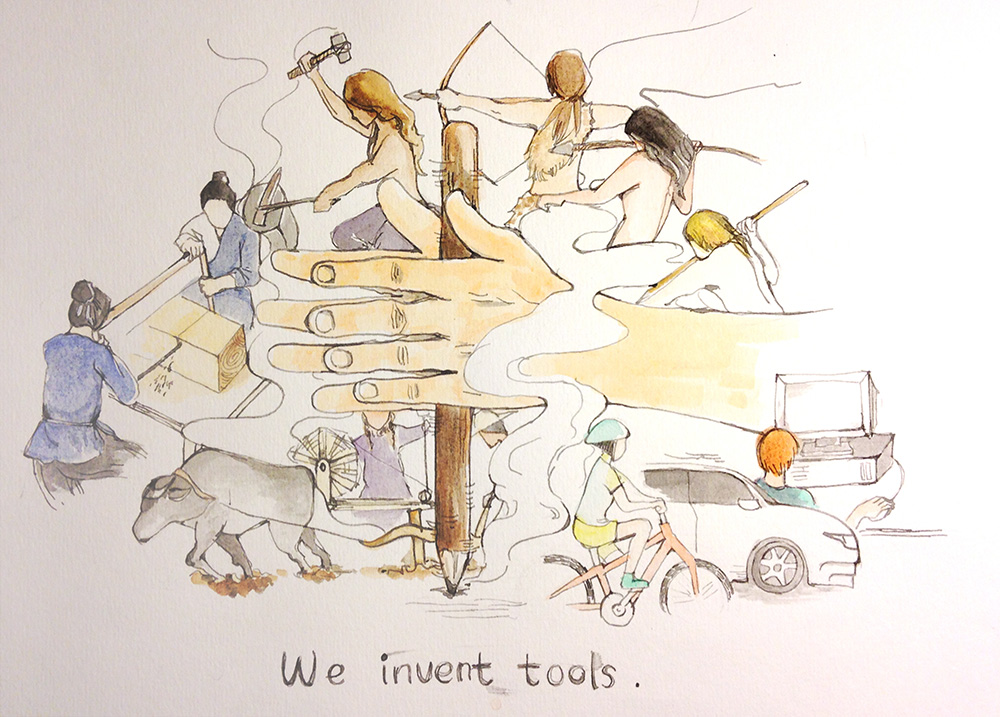 We invent tools.